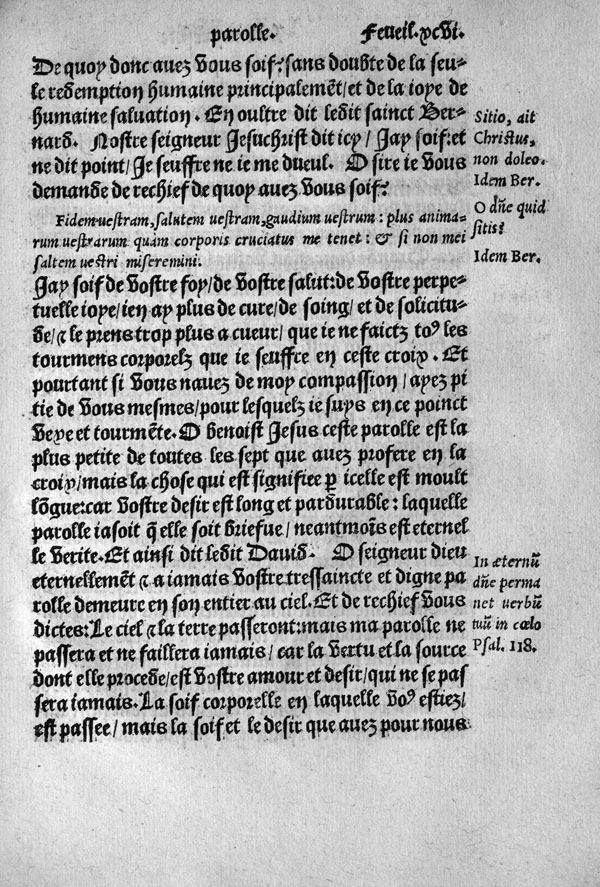 parolle. Feueil. xcvi.
De quoy donc auez vous soif? sans doubte de la seu-
le redemption humaine principalemēt/ et de la ioye de
humaine saluation. En oultre dit ledit sainct Ber-
nard. Nostre seigneur Jesuchrist dit icy/ Jay soif: et
ne dit point/ Je seuffre ne ie me dueul. O sire ie vous
demande de rechief de quoy auez vous soif?
Fidem uestram, salutem uestram, gaudium uestrum: plus anima-
rum uestrarum quàm corporis cruciatus me tenet: & si non mei
saltem uestri miseremini.
Jay soif de vostre foy/ de vostre salut: de vostre perpe-
tuelle ioye/ ien ay plus de cure/ de soing/ et de solicitu-
de/ ⁊ le prens trop plus a cueur/ que ie ne faictz to⁹ les
tourmens corporelz que ie seuffre en ceste croix. Et
pourtant si vous nauez de moy compassion/ ayez pi
tie de vous mesmes/ pour lesquelz ie suys en ce poinct
vexe et tourmēte. O benoist Jesus ceste parolle est la
plus petite de toutes les sept que auez profere en la
croix/ mais la chose qui est signifiee p̄ icelle est moult
lōgue: car vostre desir est long et pardurable: laquelle
parolle iasoit q̄ elle soit briefue/ neantmoīs est eternel
le verite. Et ainsi dit ledit Dauid. O seigneur dieu
eternellemēt ⁊ a iamais vostre tressaincte et digne pa
rolle demeure en son entier au ciel. Et de rechief vous
dictes: Le ciel ⁊ la terre passeront: mais ma parolle ne
passera et ne faillera iamais/ car la vertu et la source
dont elle procede/ est vostre amour et desir/ qui ne se pas
sera iamais. La soif corporelle en laquelle vo⁹ estiez/
est passee/ mais la soif et le desir que auez pour nous
Sitio, ait
Christus,
non doleo.
Idem Ber.
O dn̄e quid
sitis?
Idem Ber.
In æternū
dn̄e perma
net uerbū
tuū in cælo
Psal. 118.